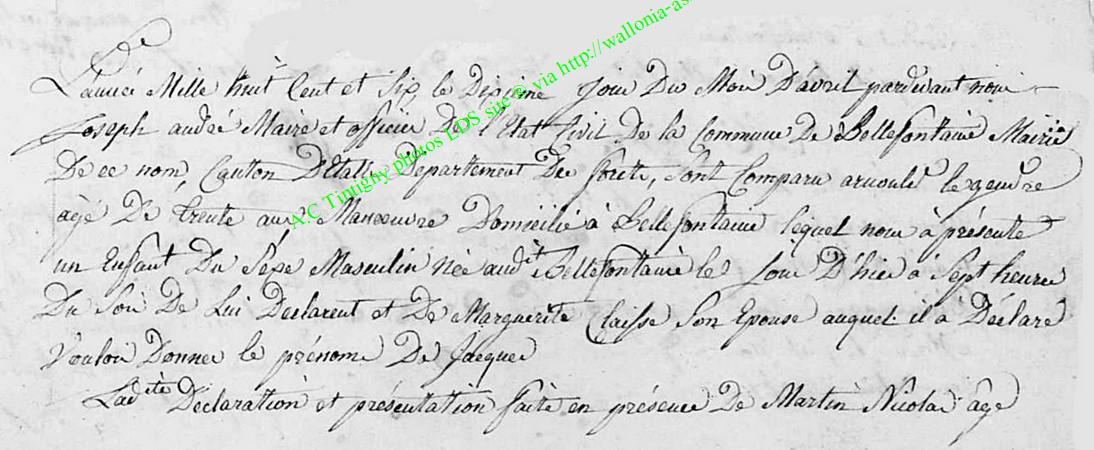 L'année Mille huit Cent et Six, le Dixieme Jour Du Mois D'avril pardevant nous
Joseph andré Maire et officier De l'Etat Civil De la Commune De Bellefontaine Mairie
De ce nom, Canton D'Etalle Departement Des forêts, Sont Comparu arnould le gendre
agé De trente ans Manoeuvre Domicilié à Bellefontaine lequel nous à présenté
un Enfant Du Séxe Masculin née audit Bellefontaine le Jour D'hier à Sept heure
Du Soir De Lui Declarent et De Marguerite Claisse Son Epouse auquel il à Déclaré
Vouloir Donner le prénom De Jacque
Ladite Déclaration et présentation faite en présence De Martin Nicolas âgé
A.C Tintigny photos LDS site © via http://wallonia-as